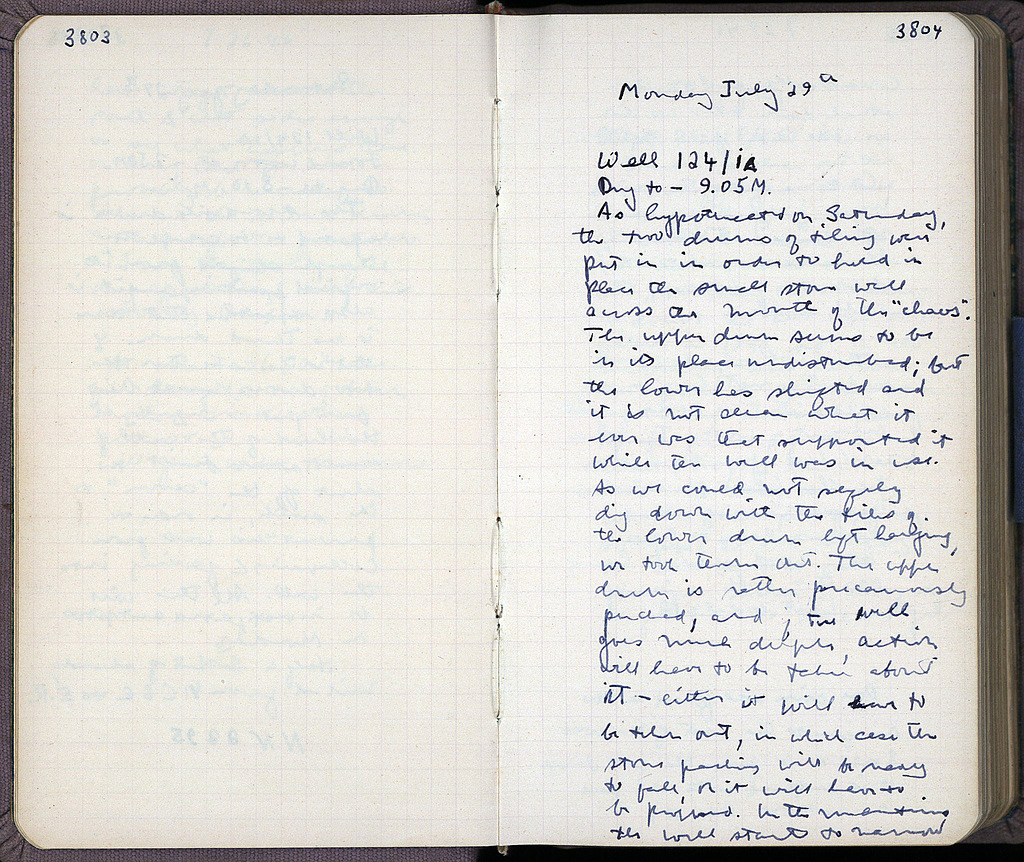 3803
3804
Monday July 29th
Well 124/1A
Dug to - 9.05M.
As hypothecated on Saturday,
the two drums of tiling were
put in in order to hold in
place the small stone well
across the mouth of the "chaos".
The upper drum seems to be
in its place undisturbed; but
the lower has shifted and
it is not clear what it
ever was that supported it
while the well was in use.
As we could not safely
dig down with the tiles of
the lower drum left hanging,
we took them out. The upper
drum is rather precariously
perched, and if the well
goes much deeper, action
will have to be taken about
it - either it will have to
be taken out, in which case the
stone packing will be ready
to fall, or it will have to
be propped. In the meantime,
the well starts to narrow